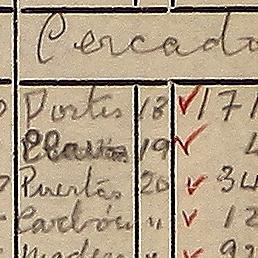 Cercado
Portes 18 171
19 4
Puertas 20 34
Carbón " 12
Madera " 92